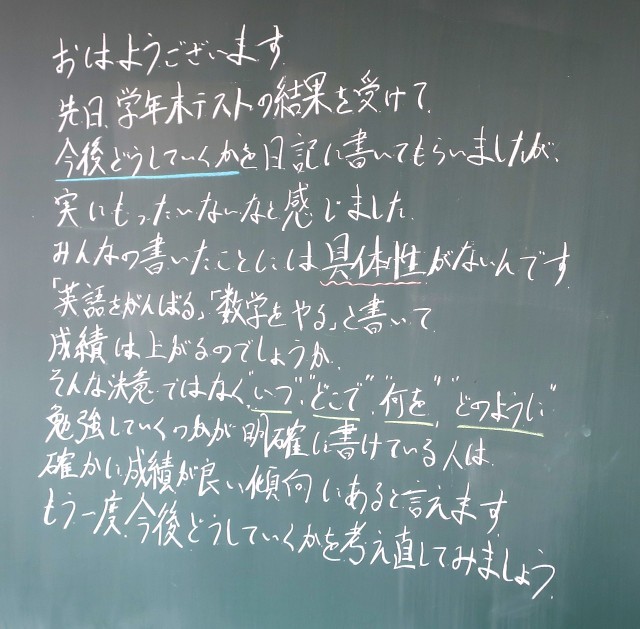 おはようございます.
先日、学年末テストの結果を受けて、
今後どうしていくかを日記に書いてもらいましたが、
実にもったいないなと感じました.
みんなの書いたことには具体性がないんです.
「英語をがんばる」「数学をやる」と書いて
成績は上がるのでしょうか.
そんな決意ではなく、"いつ"、"どこで"、"何を"、"どのように"
勉強していくつかが明確に書けている人は、
確かに成績が良い傾向にあると言えます.
もう一度、今後どうしていくかを考え直してみましょう.